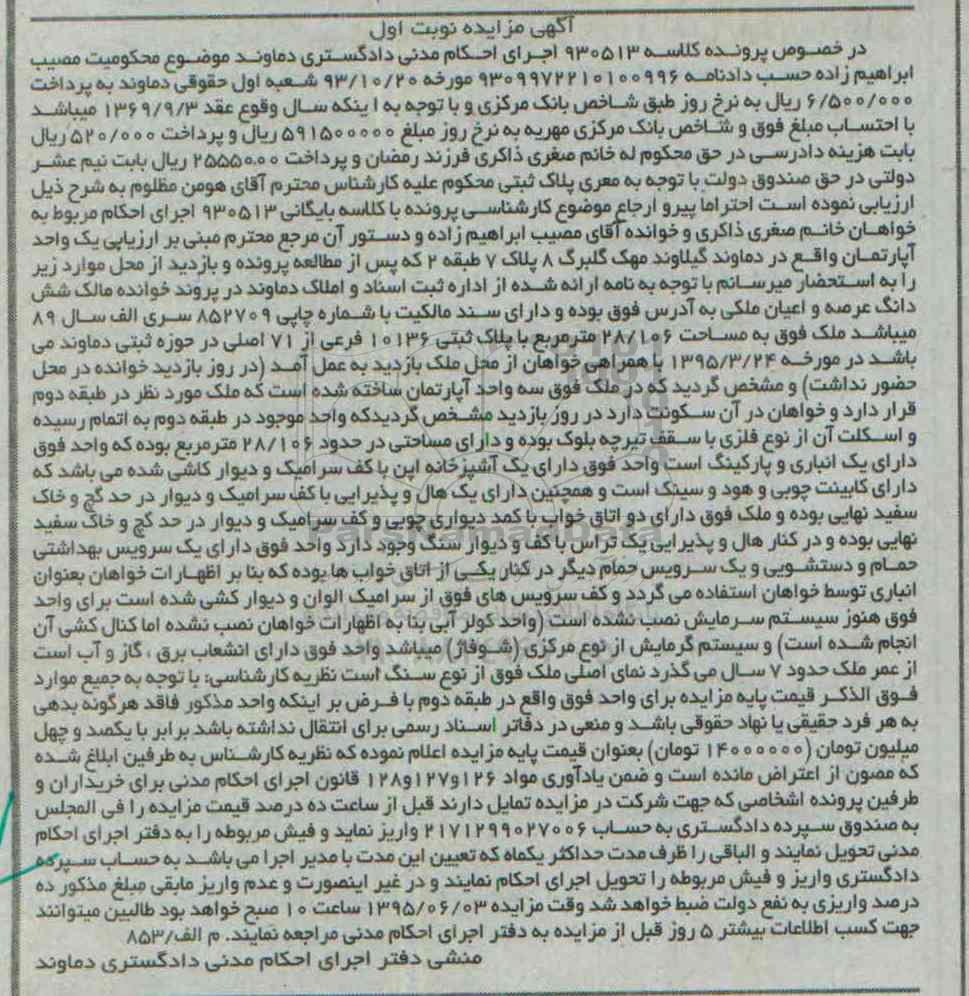 آگهی مزایده نوبت اول
در خصوص پرونده کلاسه ۹۳۰۵۱۳ اجرای احکام مدنی دادگستری دماوند موضوع محکومیت مصیب
ابراهیم زاده حسب دادنامه ۹۳۰۹۹۷۲۲۱۰۱۰۰۹۹۶ مورخه ۹۳/۱۰/۲۰ شعبه اول حقوقی دماوند به پرداخت
۶/۵۰۰/۰۰۰ ریال به نرخ روز طبق شاخص بانک مرکزی و با توجه به اینکه سال وقوع عقد ۱۳۶۹/۹/۳ میباشد
با احتساب مبلغ فوق و شاخص بانک مرکزی مهریه به نرخ روز مبلغ ۵۹۱۵۰۰۰۰۰ ریال و پرداخت ۵۲۰/۰۰۰ ریال
بابت هزینه دادرسی در حق محکوم له خانم صغری ذاکری فرزند رمضان و پرداخت ۲۵۵۵۰۰۰۰ ریال بابت نیم عشر
دولتی در حق صندوق دولت با توجه به معری پلاک ثبتی محکوم علیه کارشناس محترم آقای هومن مظلوم به شرح ذیل
ارزیابی نموده است احتراما پیرو ارجاع موضوع کارشناسی پرونده با کلاسه بایگانی ۹۳۰۵۱۳ اجرای احکام مربوط به
خواهان خانم صغری ذاکری و خوانده آقای مصیب ابراهیم زاده و دستور آن مرجع محترم مبنی بر ارزیابی یک واحد
آپارتمان واقع در دماوند گیلاوند مهک گلبرگ ۸ پلاک ۷ طبقه ۲ که پس از مطالعه پرونده و بازدید از محل موارد زیر
را به استحضار میرسانم با توجه به نامه ارائه شده از اداره ثبت اسناد و املاک دماوند در پروند خوانده مالک شش
دانگ عرصه و اعیان ملکی به آدرس فوق بوده و دارای سند مالکیت با شماره چاپی ۸۵۲۷۰۹ سری الف سال ۸۹
میباشد ملک فوق به مساحت ۲۸/۱۰۶ مترمربع با پلاک ثبتی ۱۰۱۳۶ فرعی از ۷۱ اصلی در حوزه ثبتی دماوند می
باشد در مورخه ۱۳۹۵/۳/۲۴ با همراهی خواهان از محل ملک بازدید به عمل آمد (در روز بازدید خوانده در محل
حضور نداشت) و مشخص گردید که در ملک فوق سه واحد آپارتمان ساخته شده است که ملک مورد نظر در طبقه دوم
قرار دارد و خواهان در آن سکونت دارد در روز بازدید مشخص گردیدکه واحد موجود در طبقه دوم به اتمام رسیده
و اسکلت آن از نوع فلزی با سقف تیرچه بلوک بوده و دارای مساحتی در حدود ۲۸/۱۰۶ مترمربع بوده که واحد فوق
دارای یک انباری و پارکینگ است واحد فوق دارای یک آشپزخانه اپن با کف سرامیک و دیوار کاشی شده می باشد که
دارای کابینت چوبی و هود و سینک است و همچنین دارای یک هال و پذیرایی با کف سرامیک و دیوار در حد گچ و خاک
سفید نهایی بوده و ملک فوق دارای دو اتاق خواب با کمد دیواری چوبی و کف سرامیک و دیوار در حد گچ و خاک سفید
نهایی بوده و در کنار هال و پذیرایی یک تراس با کف و دیوار سنگ وجود دارد واحد فوق دارای یک سرویس بهداشتی
حمام و دستشویی و یک سرویس حمام دیگر در کنار یکی از اتاق خواب ها بوده که بنا بر اظهارات خواهان بعنوان
انباری توسط خواهان استفاده می گردد و کف سرویس های فوق از سرامیک الوان و دیوار کشی شده است برای واحد
فوق هنوز سیستم سرمایش نصب نشده است (واحد کولر آبی بنا به اظهارات خواهان نصب نشده اما کنال کشی آن
انجام شده است) و سیستم گرمایش از نوع مرکزی (شوفاژ) میباشد واحد فوق دارای انشعاب برق ، گاز و آب است
از عمر ملک حدود ۷ سال می گذرد نمای اصلی ملک فوق از نوع سنگ است نظریه کارشناسی: با توجه به جمیع موارد
فوق الذکر قیمت پایه مزایده برای واحد فوق واقع در طبقه دوم با فرض بر اینکه واحد مذکور فاقد هرگونه بدهی
به هر فرد حقیقی یا نهاد حقوقی باشد و منعی در دفاتر اسناد رسمی برای انتقال نداشته باشد برابر با یکصد و چهل
میلیون تومان (۱۴۰۰۰۰۰۰۰ تومان) بعنوان قیمت پایه مزایده اعلام نموده که نظریه کارشناس به طرفین ابلاغ شده
که مصون از اعتراض مانده است و ضمن یادآوری مواد ۱۲۶و۱۲۷و۱۲۸ قانون اجرای احکام مدنی برای خریداران و
طرفین پرونده اشخاصی که جهت شرکت در مزایده تمایل دارند قبل از ساعت ده درصد قیمت مزایده را فی المجلس
به صندوق سپرده دادگستری به حساب ۲۱۷۱۲۹۹۰۲۷۰۰۶ واریز نماید و فیش مربوطه را به دفتر اجرای احکام
مدنی تحویل نمایند و الباقی را ظرف مدت حداکثر یکماه که تعیین این مدت با مدیر اجرا می باشد به حساب سپرده
دادگستری واریز و فیش مربوطه را تحویل اجرای احکام نمایند و در غیر اینصورت و عدم واریز مابقی مبلغ مذکور ده
درصد واریزی به نفع دولت ضبط خواهد شد وقت مزایده ۱۳۹۵/۰۶/۰۳ ساعت ۱۰ صبح خواهد بود طالبین میتوانند
جهت کسب اطلاعات بیشتر ۵ روز قبل از مزایده به دفتر اجرای احکام مدنی مراجعه نمایند. م الف/۸۵۳
منشی دفتر اجرای احکام مدنی دادگستری دماوند